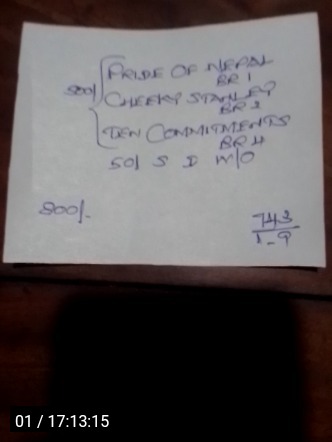 PRIDE OF NEPAL
BR 1
CHEEKY STANLEY
BR 2
TEN COMMITMENTS
BR 4
50/ S D W/O
743
01 / 17:13:15